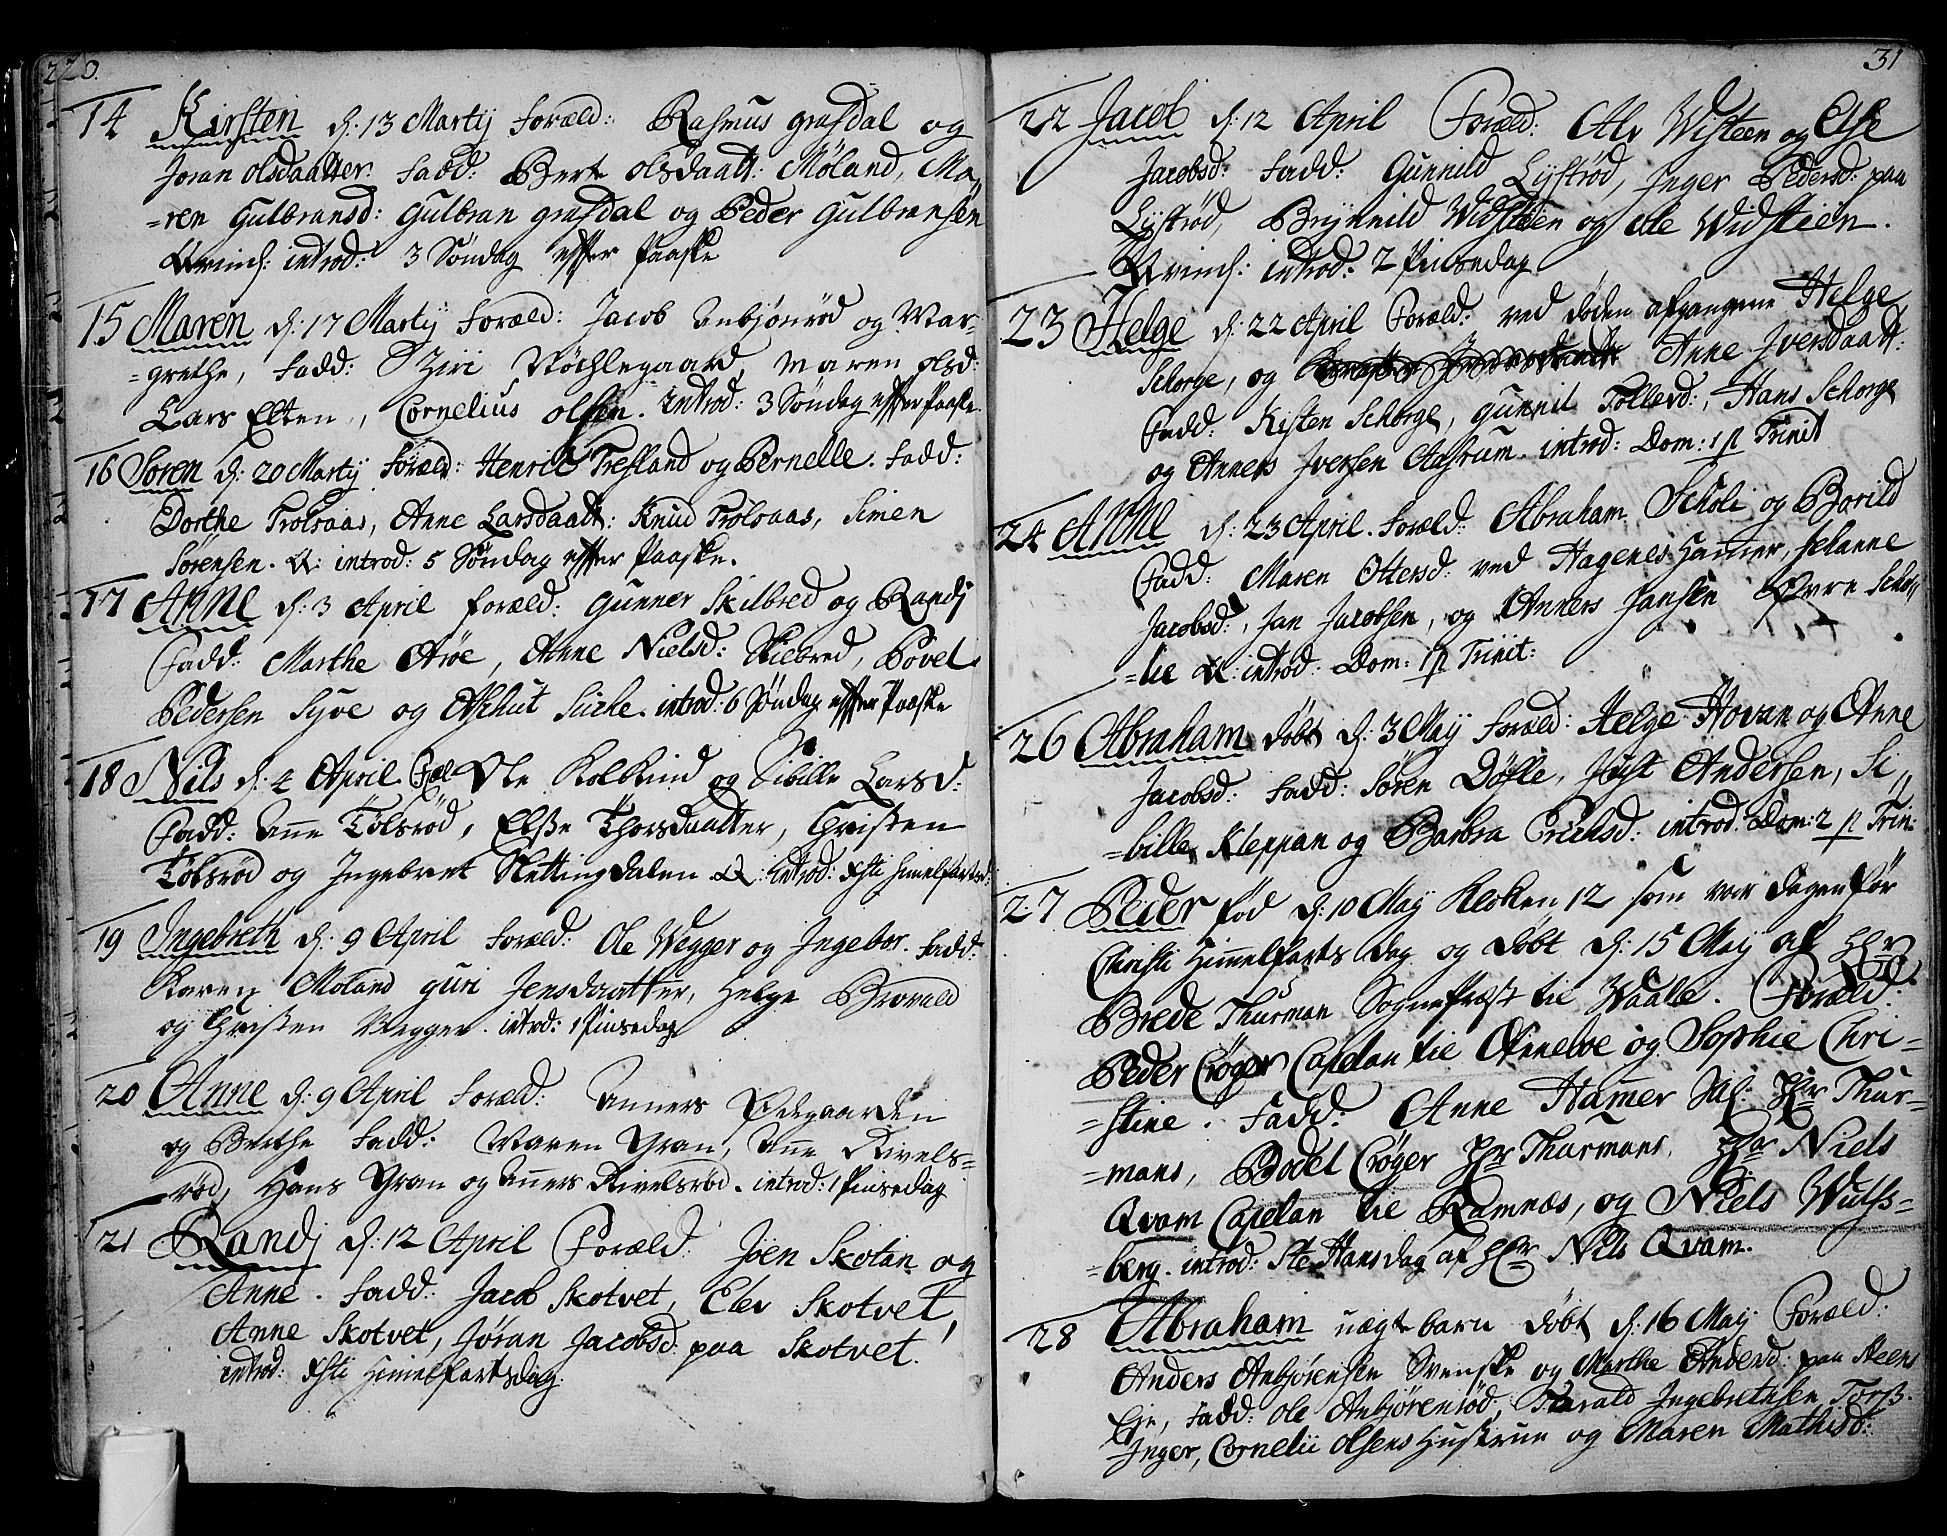 220.
14 Kirsten d: 13 Martij Foræld: Rasmus Grafdal og
Joran Olsdaatter. Fadd: Bert Olsdaatt: Møland, Ma,,
=ren Gulbransd: Gulbran Grafdal og Peder Gulbransen
introd: 3 Søndag effter Paaske
15 Maren d: 17 Martij Foræld: Jacob Anbjönröd og Mar-
=grethe, Fadd: Ziri Röchlegaard, Maren Olsd:
Lars Elten, Cornelius Olsen. introd: 3 Søndag effter Paaske.
16 Soren d: 20 Martij Foræld: Henric Trefland og Pernelle. Fadd:
Dorthe Trolsaas, Anne Larsdaatt: Knud Trolsaas, Simen
Sørensen. introd: 5 Søndag effter Paaske.
17 Anne d: 3 April Foræld: Gunner Skilbred og Randj
Fadd: Marthe Aröe, Anne Nielsd: Skiebred, Povel
Pedersen Syve og introd: 6 Søndag effter Paaske
18 Nils d: 4 April Foræl Ole Kolkind og Sibille Larsd:
Fadd: Anne Tölsröd, Elsse Thorsdaatter, Christen
Tölsröd og Ingebret Slettingdalen introd: Xsti Himelfartsd:
19 Ingebreth d: 9 April Foræld: Ole Wegger og Ingebor. Fadd:
Karen Moland Guri Jensdaatter, Helge Brovald
og Christen Wegger. introd: 1 Pinsedag
20 Anne d: 9 April Foræld: Anners Ödegaarden
og Berthe Fadd: Maren Gran, Anne Rivels=
röd, Hans Gran og Anners Rivelsröd. introd: 1 Pinsedag
21 Randj d: 12 April Foræld: Joen Skotan og
Anne. Fadd: Jacob Skotvet, Elev Skotvet,
Anne Skotvet, Jøran Jacobsd: paa Skotvet.
introd: Xsti Himelfartsdag.
31
22 Jacob d: 12 April Foræld: Alv Wisteen og Else
Jacobsd: Fadd: Gunnild Lystrød, Inger Pedersd: paa
Lystrød, Brynnild Widsteen og Ole Widsteen.
introd: 2 Pinsedag
23 Helge d: 22 April Foræld: ved døden afgangene Helge
Schorge, og Anne Iversdaatt:
Fadd: Kisten Schorge, Gunnil Tollevd:, Hans Schorge
og Anners Iversen Aasrum. introd: Dom: 1 p Trinit
24 Anne d: 23 April. Foræld: Abraham Scholi og Borild
Fadd: Maren Ottersd: ved Hagenes Hamer, Helanne
Jacobsd:, Jan Jacobsen, og Anners Jansen Øvre Scho,,
=lie introd: Dom: 1 p Trinit:
26 Abraham døbt d: 3 Maij Foræld: Helge Hovan og Anne
Jacobsd: Fadd: Søren Døfle, Just Andersen, Si,,
=bille Kleppan og Barbra Erichsd: introd: Dom: 2 p Trin:
27 Peder fød d: 10 Maij Klocken 12 som var dagen før
Christi Himmelfarts dag og døbt d: 15 Maij af Hr
Brede Thurman Sognepræst til Waale. Foræld:
Peder Crøger Capelan til Annebve og Sophie Chri=
=stine. Fadd: Anne Hamer Hr Thur=
=mans, Bodel Crøger Hr Thurmans, Hr Niels
Qvam Capelan til Ramnæs, og Niels Wulfs=
=berg. introd: Ste Hansdag af Hr Niels Qvam.
28 Abraham uægtebarn døbt d: 16 Maij Foræld:
Anders Anbjørensen Svenske og Marthe Andersd: paa Steens
Eje, Fadd: Ole Anbjørensröd, Harald Ingebrethsen Torß.
Inger, Cornelii Olsens Hustrun og Maren Mathisd: